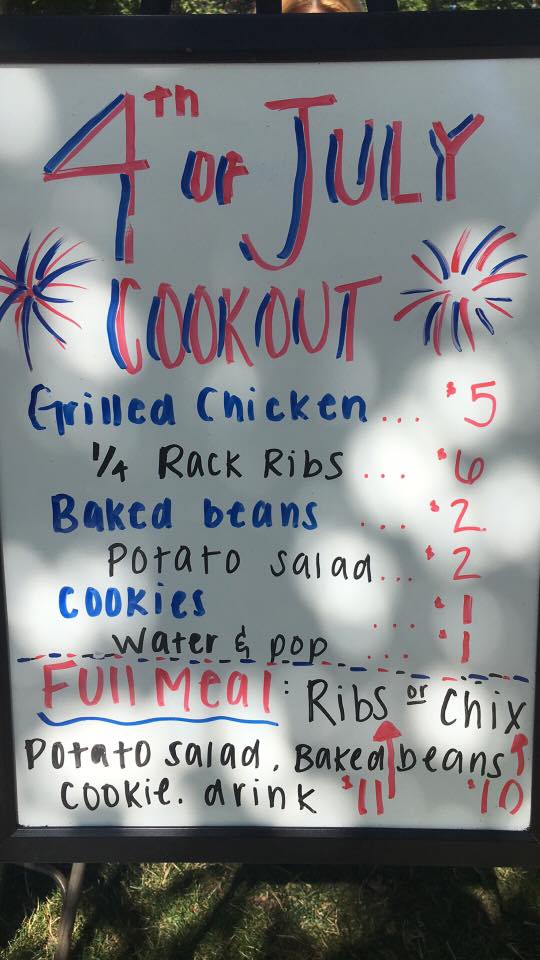 4th OF JULY
COOKOUT
Grilled Chicken... $5
1/4 Rack Ribs ... $6
Baked beans ... $2
Potato salad... $2
Cookies ... $1
Water & pop ... $1
Full Meal: Ribs or Chix
Potato salad, Baked beans
Cookie. drink $11 $10